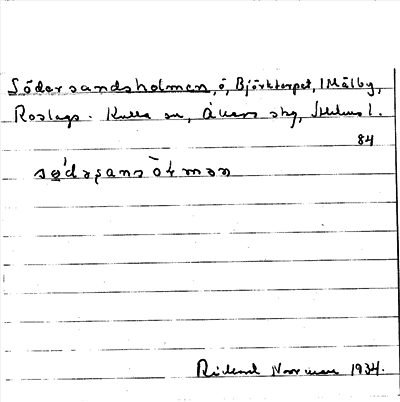 Södersandsholmen, ö, Björktorpet, 1 Mälby,
Roslags-Kulla sn, Åkers skg, Sthlms l.
84
Rickard Norrman 1934.